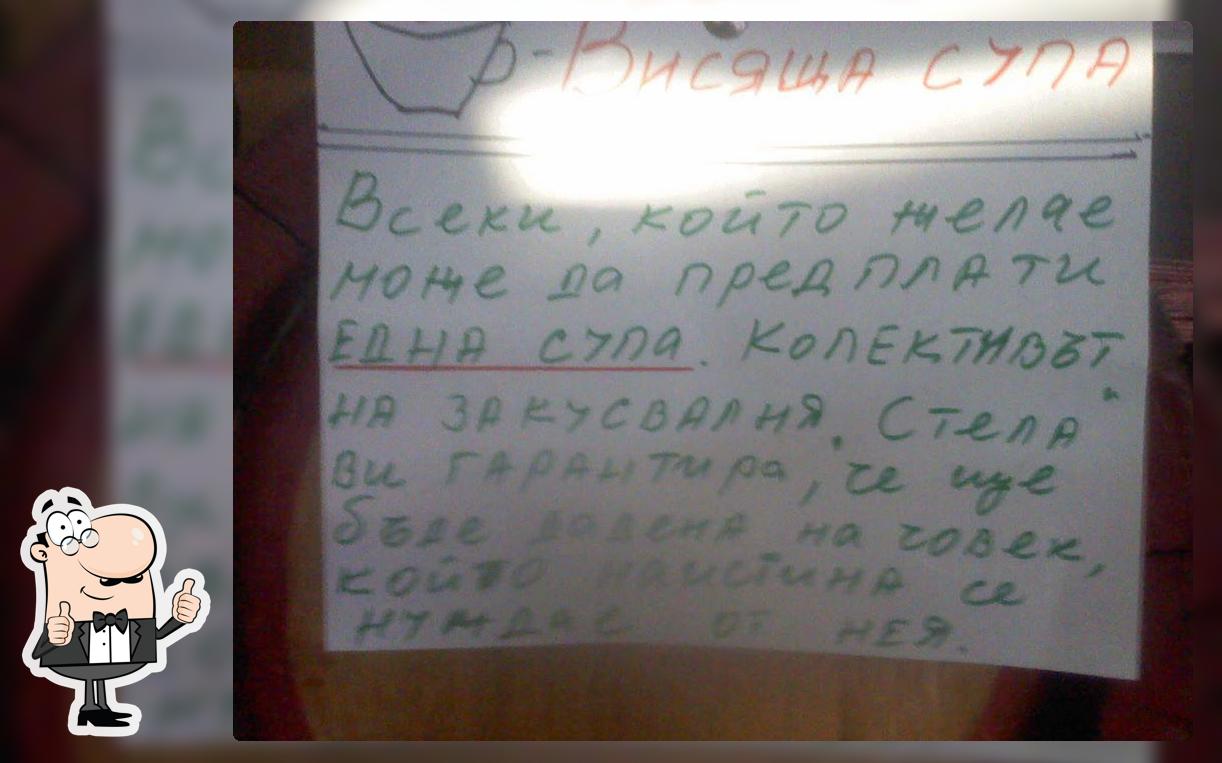 - Висяща супа
Всеки, който желае
може да предплати
ЕДНА супа. Колективът
на закусвалня „Стела"
ви гарантира, че ще
бъде дадена на човек,
който наистина се
нуждае от нея.